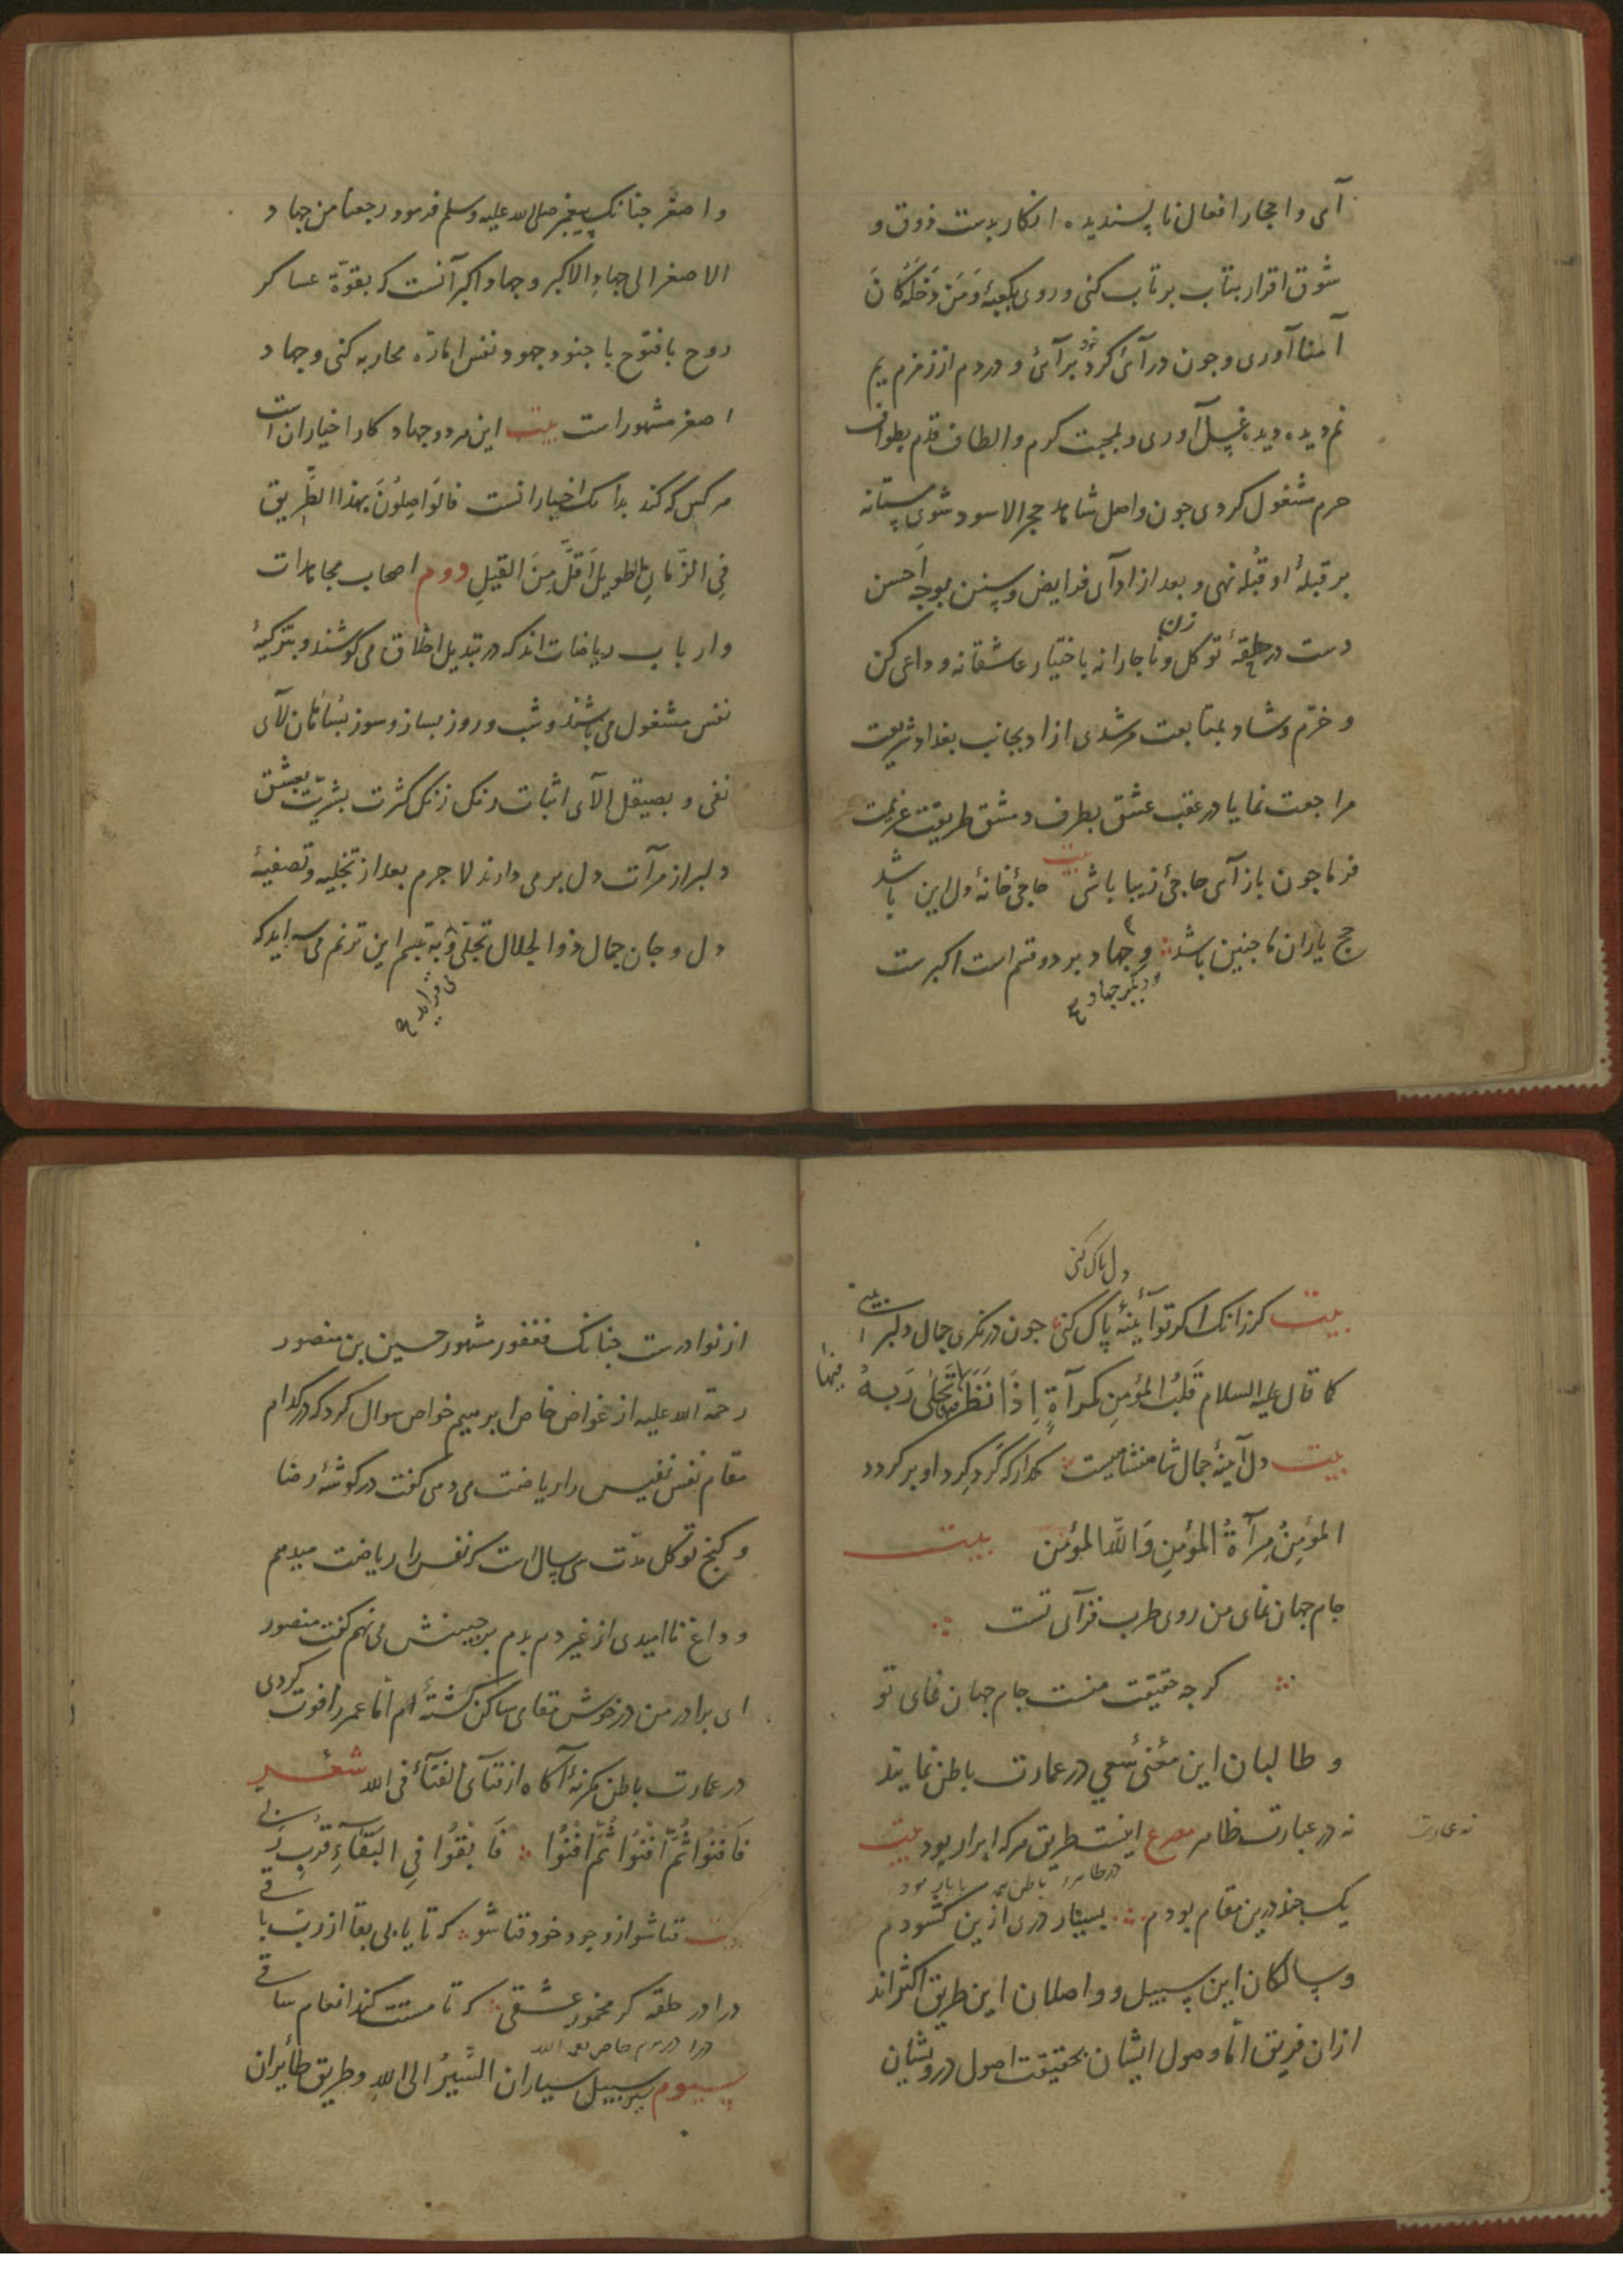 آی و احجار افعال ناپسندیده انکار بدست ذوق و
شوق اقرار بتاب برتاب کنی و روی بکعبهٔ وَمَن دَخَلَهُ کَانَ
آمنا آوری و چون درآئی کرد برآئی و دردم از زمزم یم
نم دیده دیده بغسل آوری و بمحبت کرم و الطاف قدم بطواف
حرم مشغول کردی چون واصل شاهد حجر الاسود شوی مستانه
بر قبلهٔ او قبله نهی و بعد از ادآی فرایض و سنن بوجه احسن
دست در حلقهٔ توکل زن و ناچارانه باختیار عاشقانه وداعی کن
و خرّم و شاد بمتابعت مرشدی ازاد بجانب بغداد شریعت
مراجعت نما یا در عقب عشق بطرف دمشق طریقت عزیمت
فرما چون بازآی حاجئ زیبا باشی بیت حاجئ خانهٔ دل این باشد
حج یاران ما چنین باشد و جهاد بر دو قسم است اکبرست
دیگر جهاد
و اصغر چنانک پیغمبر صلی الله علیه وسلم فرمود رجعنا من جهاد
الاصغر الی جهادِ الاکبر و جهاد اکبر آنست که بقوّة عساکر
روح بافتوح با جنود جهود نفس امّاره محاربه کنی و جهاد
اصغر مشهور است بیت این هر دو جهاد کار اخیاران است
هر کس که کند بدانک اخیار انست فالوَاصِلُونَ بهذا الطَّریق
فِی الزّمانِ الطویلِ اَقَلَّ مِنَ القلیلِ دوم اصحاب مجاهدات
و ارباب ریاضات اند که در تبدیل اخلاق می کوشند و بتزکیهٔ
نفس مشغول می باشند و شب و روز بساز و سوز بسَانَانِ لآی
نفی و بصیقل الآی اثبات رنک زنک کثرت بشریّت بعشق
دلبر از مرآت دل برمی دارند لاجرم بعد از تجلیه و تصفیهٔ
دل و جان جمال ذوالجلال تجلی و به تبسم این ترنم می سراید که
می فرماید
دل پاک کنی
بیت کر زانک اکر تو آیینهٔ پاک کنی چون درنکری جمال دلبر بینی
کما قال علیه السلام قَلبُ المؤمِنِ کمرآةٍ اِذَا نَظَرَ تَجَلّی رَبهُ
فیها
بیت دل آینهٔ جمال شاهنشاهیست مکذار که کَرد کِرد او بر کردد
المؤمِنُ مِرآةُ المؤمِنِ وَاللهُ المؤمنُ بیت
جام جهان نمای من روی طرب فزآی تست
کرچه حقیقت منست جام جهان نمای تو
و طالبان این مَعْنئ سَعی در عمارت باطن نمایند
نه در عبارت ظاهر مصرع اینست طریق هر که ابرار بود بیت
نه عمارت
یک چند درین مقام بودم بسیار دری ازین کشودم
و سالکان این سبیل و واصلان این طریق اکثراند
ازان فریق امّا وصول ایشان بحقیقت اصول درویشان
از نوادرست چنانک فغفور مشهور حسین بن منصور
رحمة الله علیه از غواض خاص ابرهیم خواص سوال کرد که در کدام
مقام نفس نفیس را ریاضت می دهی کفت در کوشهٔ رضا
و کنج توکل مدّت سی سال است که نفس را ریاضت میدهم
و داغ ناامیدی از غیر دم بدم بر جبینش می نهم کفت منصور
ای برادر من در خوش مقامی ساکن کشتهٔ ام امّا عمر را فوت کردی
در عمارت باطن مکرنهٔ آکاه از فنآی الفنآءُ فی الله شعر
فَافنُوا ثُمَّ افنُوا ثُمَّ افنُوا فَابْقُوا فِی البَقَآءِ قرب ربی
بیت فنا شو از وجود خود فنا شو که تا یابی بقا از رب باقی
درا در حلقه کر مخمور عشقی که تا مستت کند انعام ساقی
سیوم بر سبیل سیاران السَّیرُ الی الله و طریق طأیران